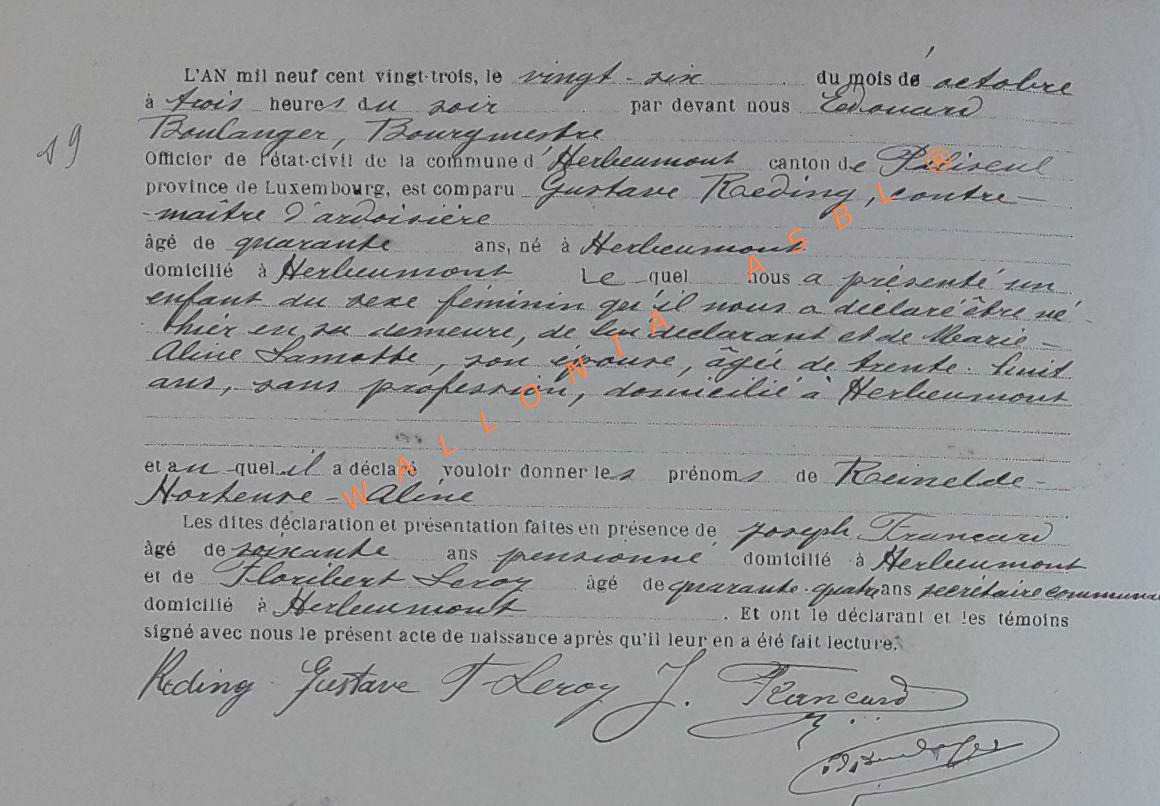 L'AN mil neuf cent vingt-trois, le vingt-six du mois de octobre
à trois heures du soir par devant nous Edouard
Boulanger, Bourgmestre
19
Officier de l'état-civil de la commune d'Herbeumont canton de Paliseul
province de Luxembourg, est comparu Gustave Reding, contre-
-maître d'ardoisière
âgé de quarante ans, né à Herbeumont
domicilié à Herbeumont Le quel nous a présenté un
enfant du sexe féminin qu'il nous a déclaré être né
hier en sa demeure, de lui déclarant et de Marie-
Aline Lamotte, son épouse, âgée de trente-huit
ans, sans profession, domicilié à Herbeumont
et au quel il a déclaré vouloir donner les prénoms de Reinelde-
Hortense-Aline
Les dites déclaration et présentation faites en présence de Joseph Francard
âgé de soixante ans pensionné domicilié à Herbeumont
et de Floribert Leroy âgé de quarante-quatre ans secrétaire communal
domicilié à Herbeumont. Et ont le déclarant et les témoins
signé avec nous le présent acte de naissance après qu'il leur en a été fait lecture.
Reding Gustave F Leroy J. Francard
WALLONIA ASBL ®